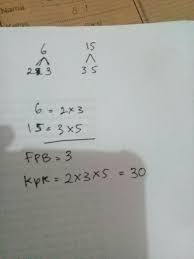 Nama
6 15
2 3 3 5
6 = 2 x 3
15 = 3 x 5
FPB = 3
KPK = 2 x 3 x 5 = 30